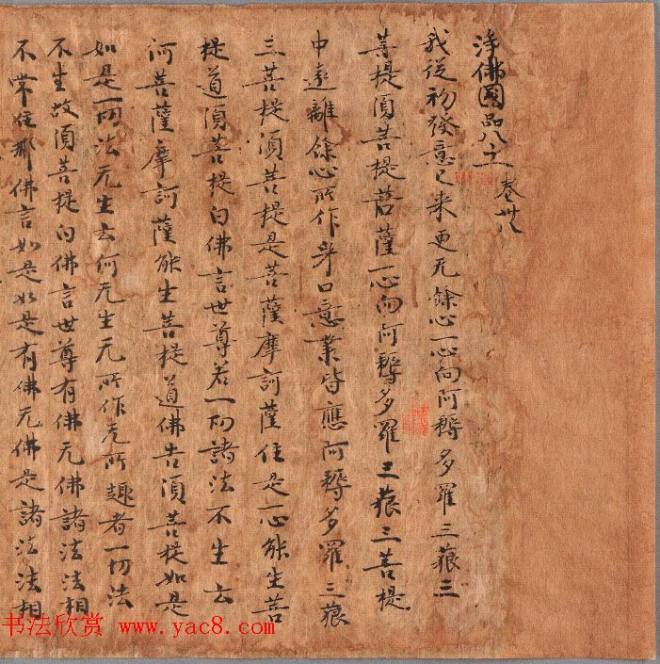 淨佛國品八十二 卷卅八
我從初發意已来更无餘心一心向阿耨多羅三藐三
菩提須菩提菩薩一心向阿耨多羅三藐三菩提
中遠離餘心所作身口意業皆應阿耨多羅三藐
三菩提須菩提是菩薩摩訶薩住是心能生菩
提道須菩提白佛言世尊若一切諸法不生云
何菩薩摩訶薩能生菩提道佛告須菩提如是
如是一切法无生云何无生无所作无所趣者一切法
不生故須菩提白佛言世尊有佛无佛諸法法相
不常住耶佛言如是如是有佛无佛是諸法法相
书法欣赏 www.yac8.com